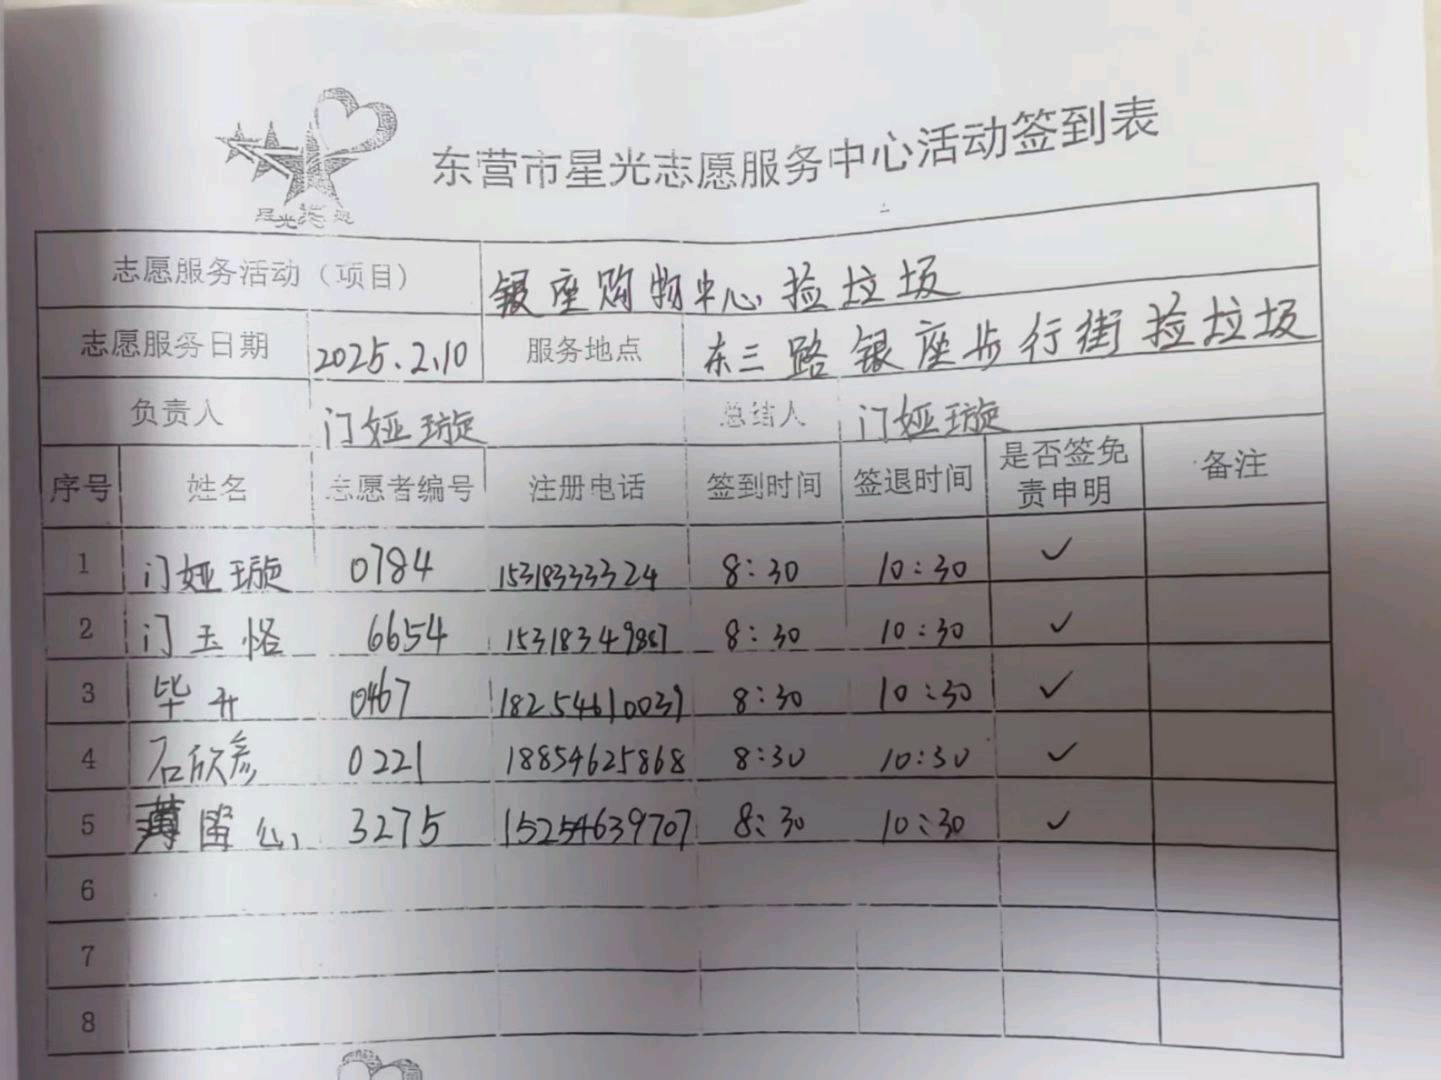 星光志愿
东营市星光志愿服务中心活动签到表
志愿服务活动（项目） 银座购物中心捡垃圾
志愿服务日期 2025.2.10 服务地点 东三路银座步行街捡垃圾
负责人 门娅璇 总结人 门娅璇
序号 姓名 志愿者编号 注册电话 签到时间 签退时间 是否签免责申明 备注
1 门娅璇 0784 15318333324 8:30 10:30 ✓
2 门玉恪 6654 15318349867 8:30 10:30 ✓
3 毕升 0467 18254610031 8:30 10:30 ✓
4 石欣彦 0221 18854625868 8:30 10:30 ✓
5 3275 15254639707 8:30 10:30 ✓
6
7
8